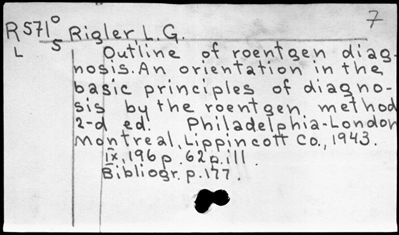 7
R571 o/s Rigler, L.G.
L Outline of roentgen diag-
nosis. An orientation in the
basic principles of diagno-
sis by the roentgen method
2-d ed. Philadelphia-London
Montreal, Lippincott Co., 1943.
ix, 196p. 62p. ill
Bibliogr. p. 177.